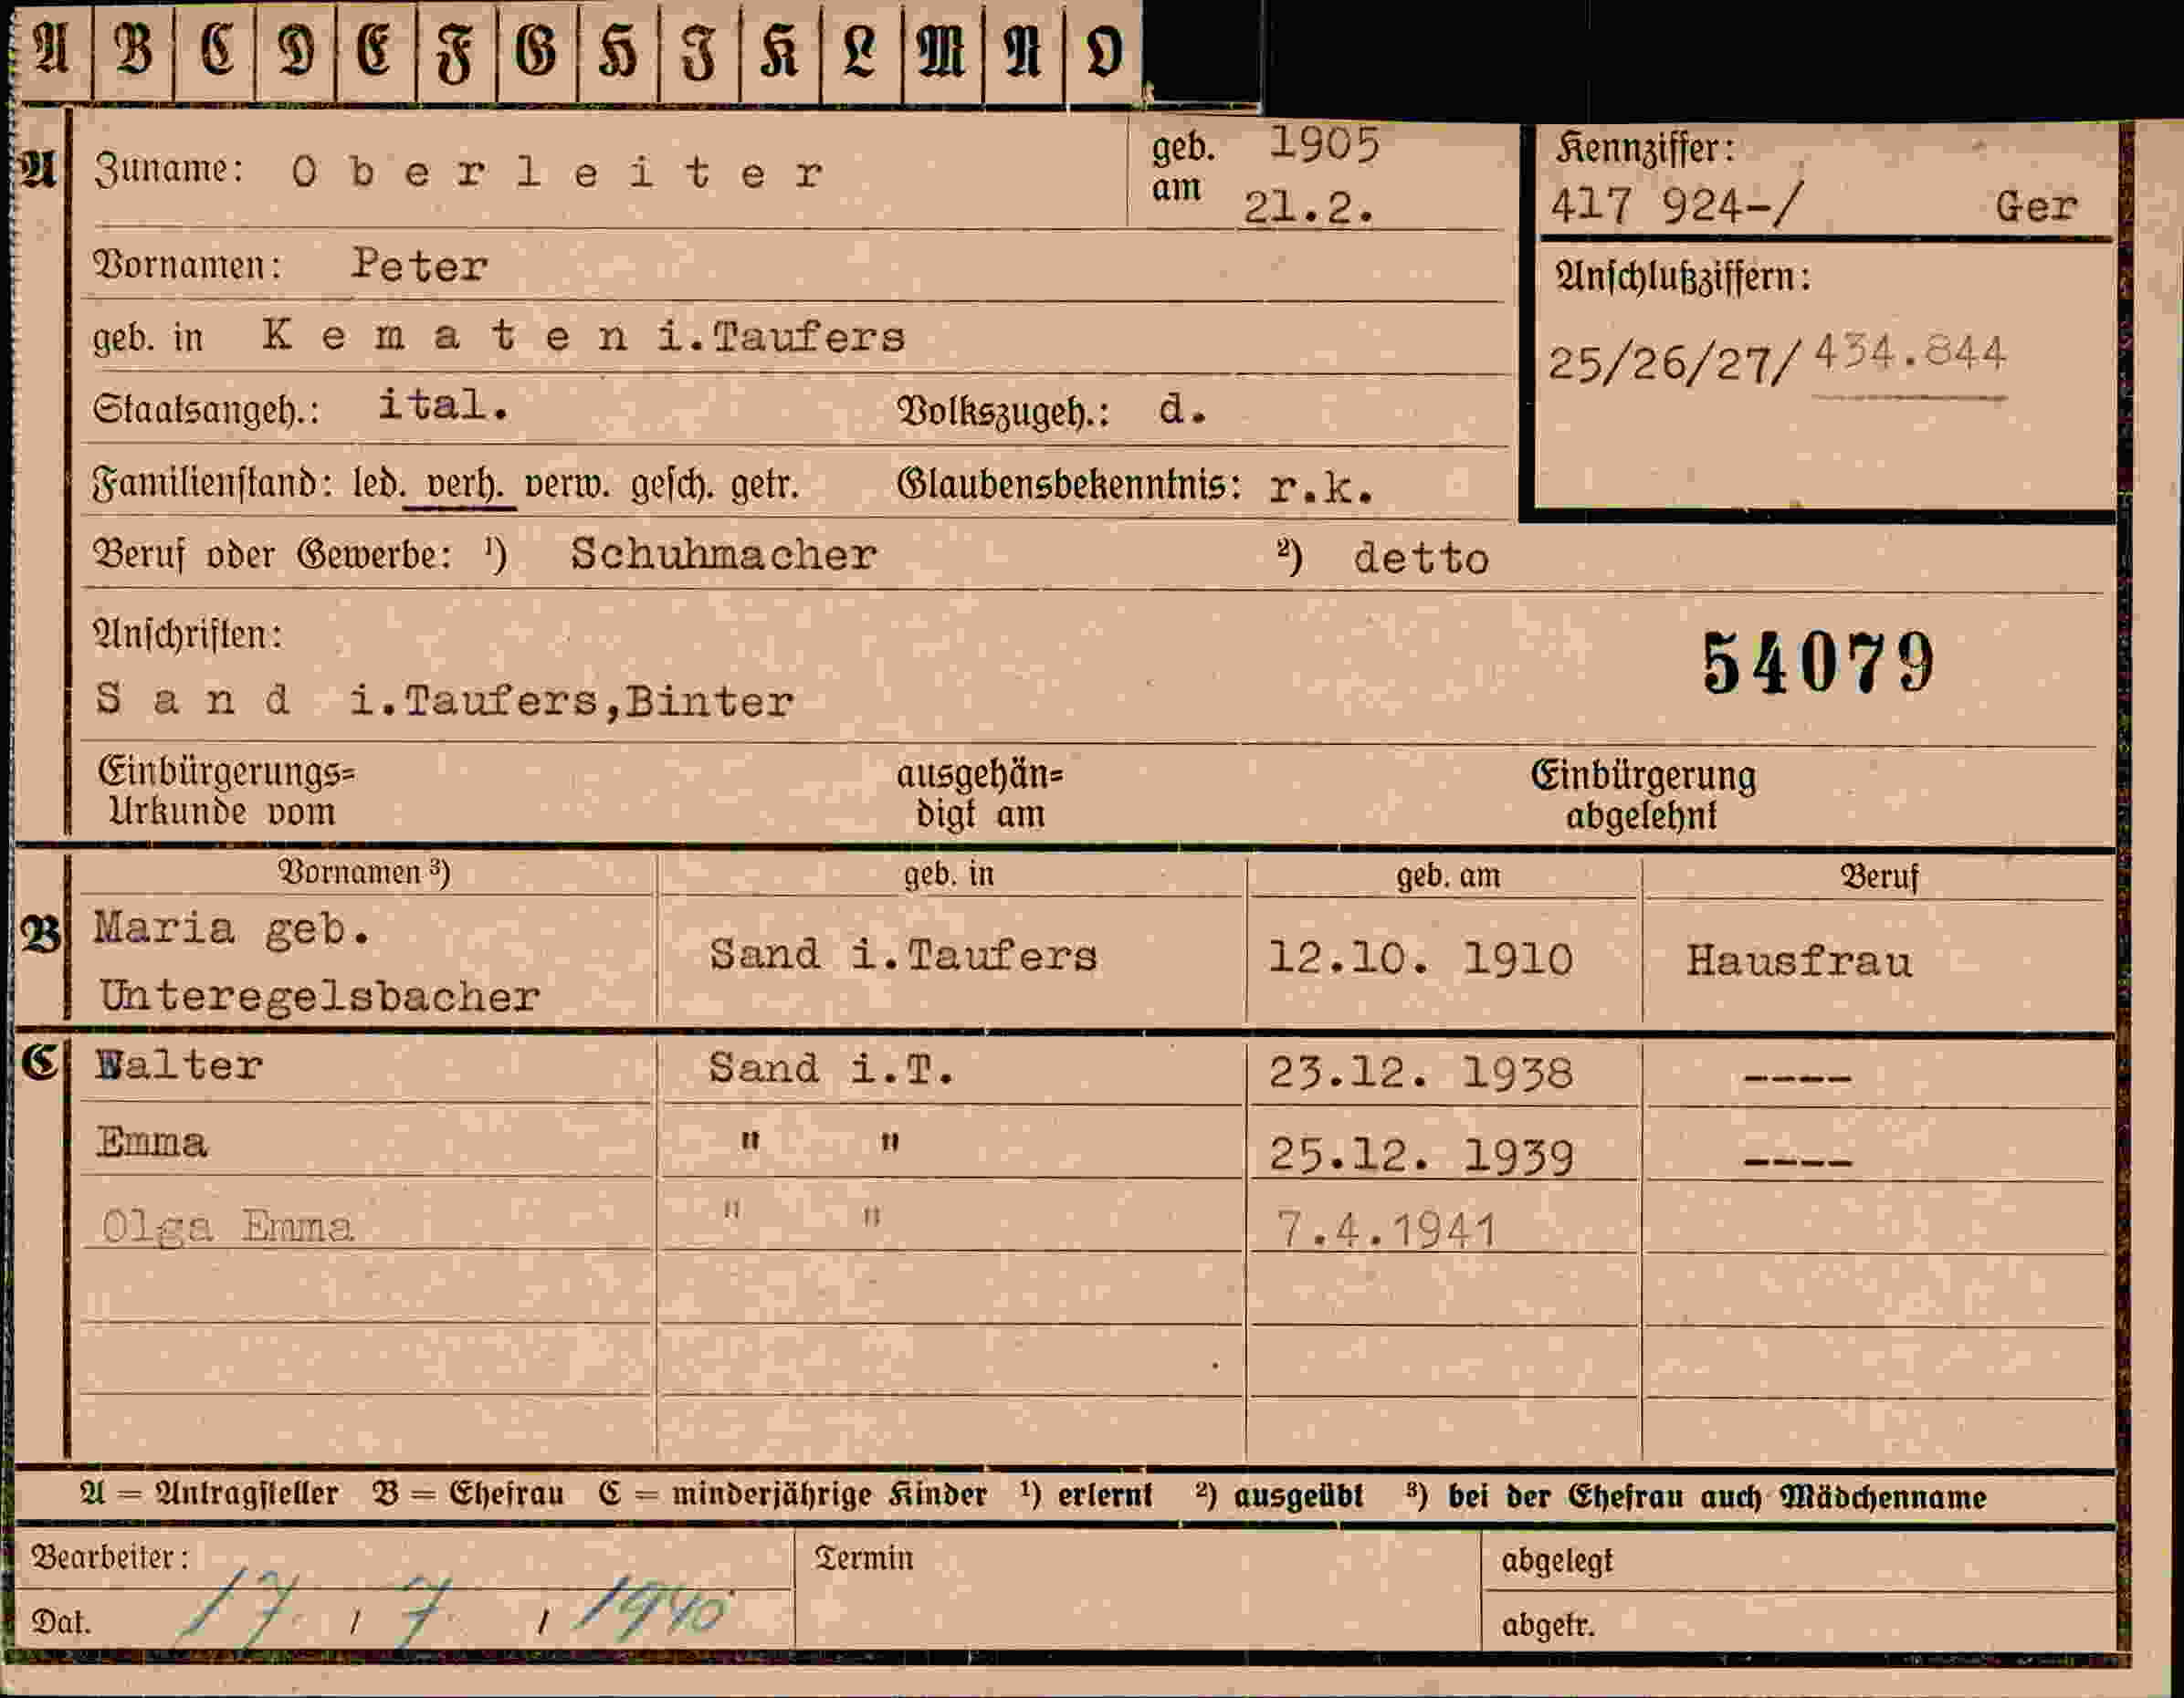 A B C D E F G H I K L M N O
A Zuname: Oberleiter geb. am 1905 21.2.
Kennziffer:
417 924-/ Ger
Vornamen: Peter
Anschlußziffern:
geb. in Kematen i.Taufers
25/26/27/434.844
Staatsangeh.: ital. Volkszugeh.: d.
Familienstand: led. verh. verw. gesch. getr. Glaubensbekenntnis: r.k.
Beruf oder Gewerbe: ¹) Schuhmacher ²) detto
Anschriften:
54079
Sand i.Taufers,Binter
Einbürgerungs= ausgehän= Einbürgerung
Urkunde vom digt am abgelehnt
Vornamen ³) geb. in geb. am Beruf
B Maria geb.
Unteregelsbacher Sand i.Taufers 12.10. 1910 Hausfrau
C Walter Sand i.T. 23.12. 1938 ----
Emma " " 25.12. 1939 ----
Olga Emma " " 7.4.1941
A = Antragsteller B = Ehefrau C = minderjährige Kinder ¹) erlernt ²) ausgeübt ³) bei der Ehefrau auch Mädchenname
Bearbeiter: Termin abgelegt
Dat. 17 / 7 / 1940 abgetr.